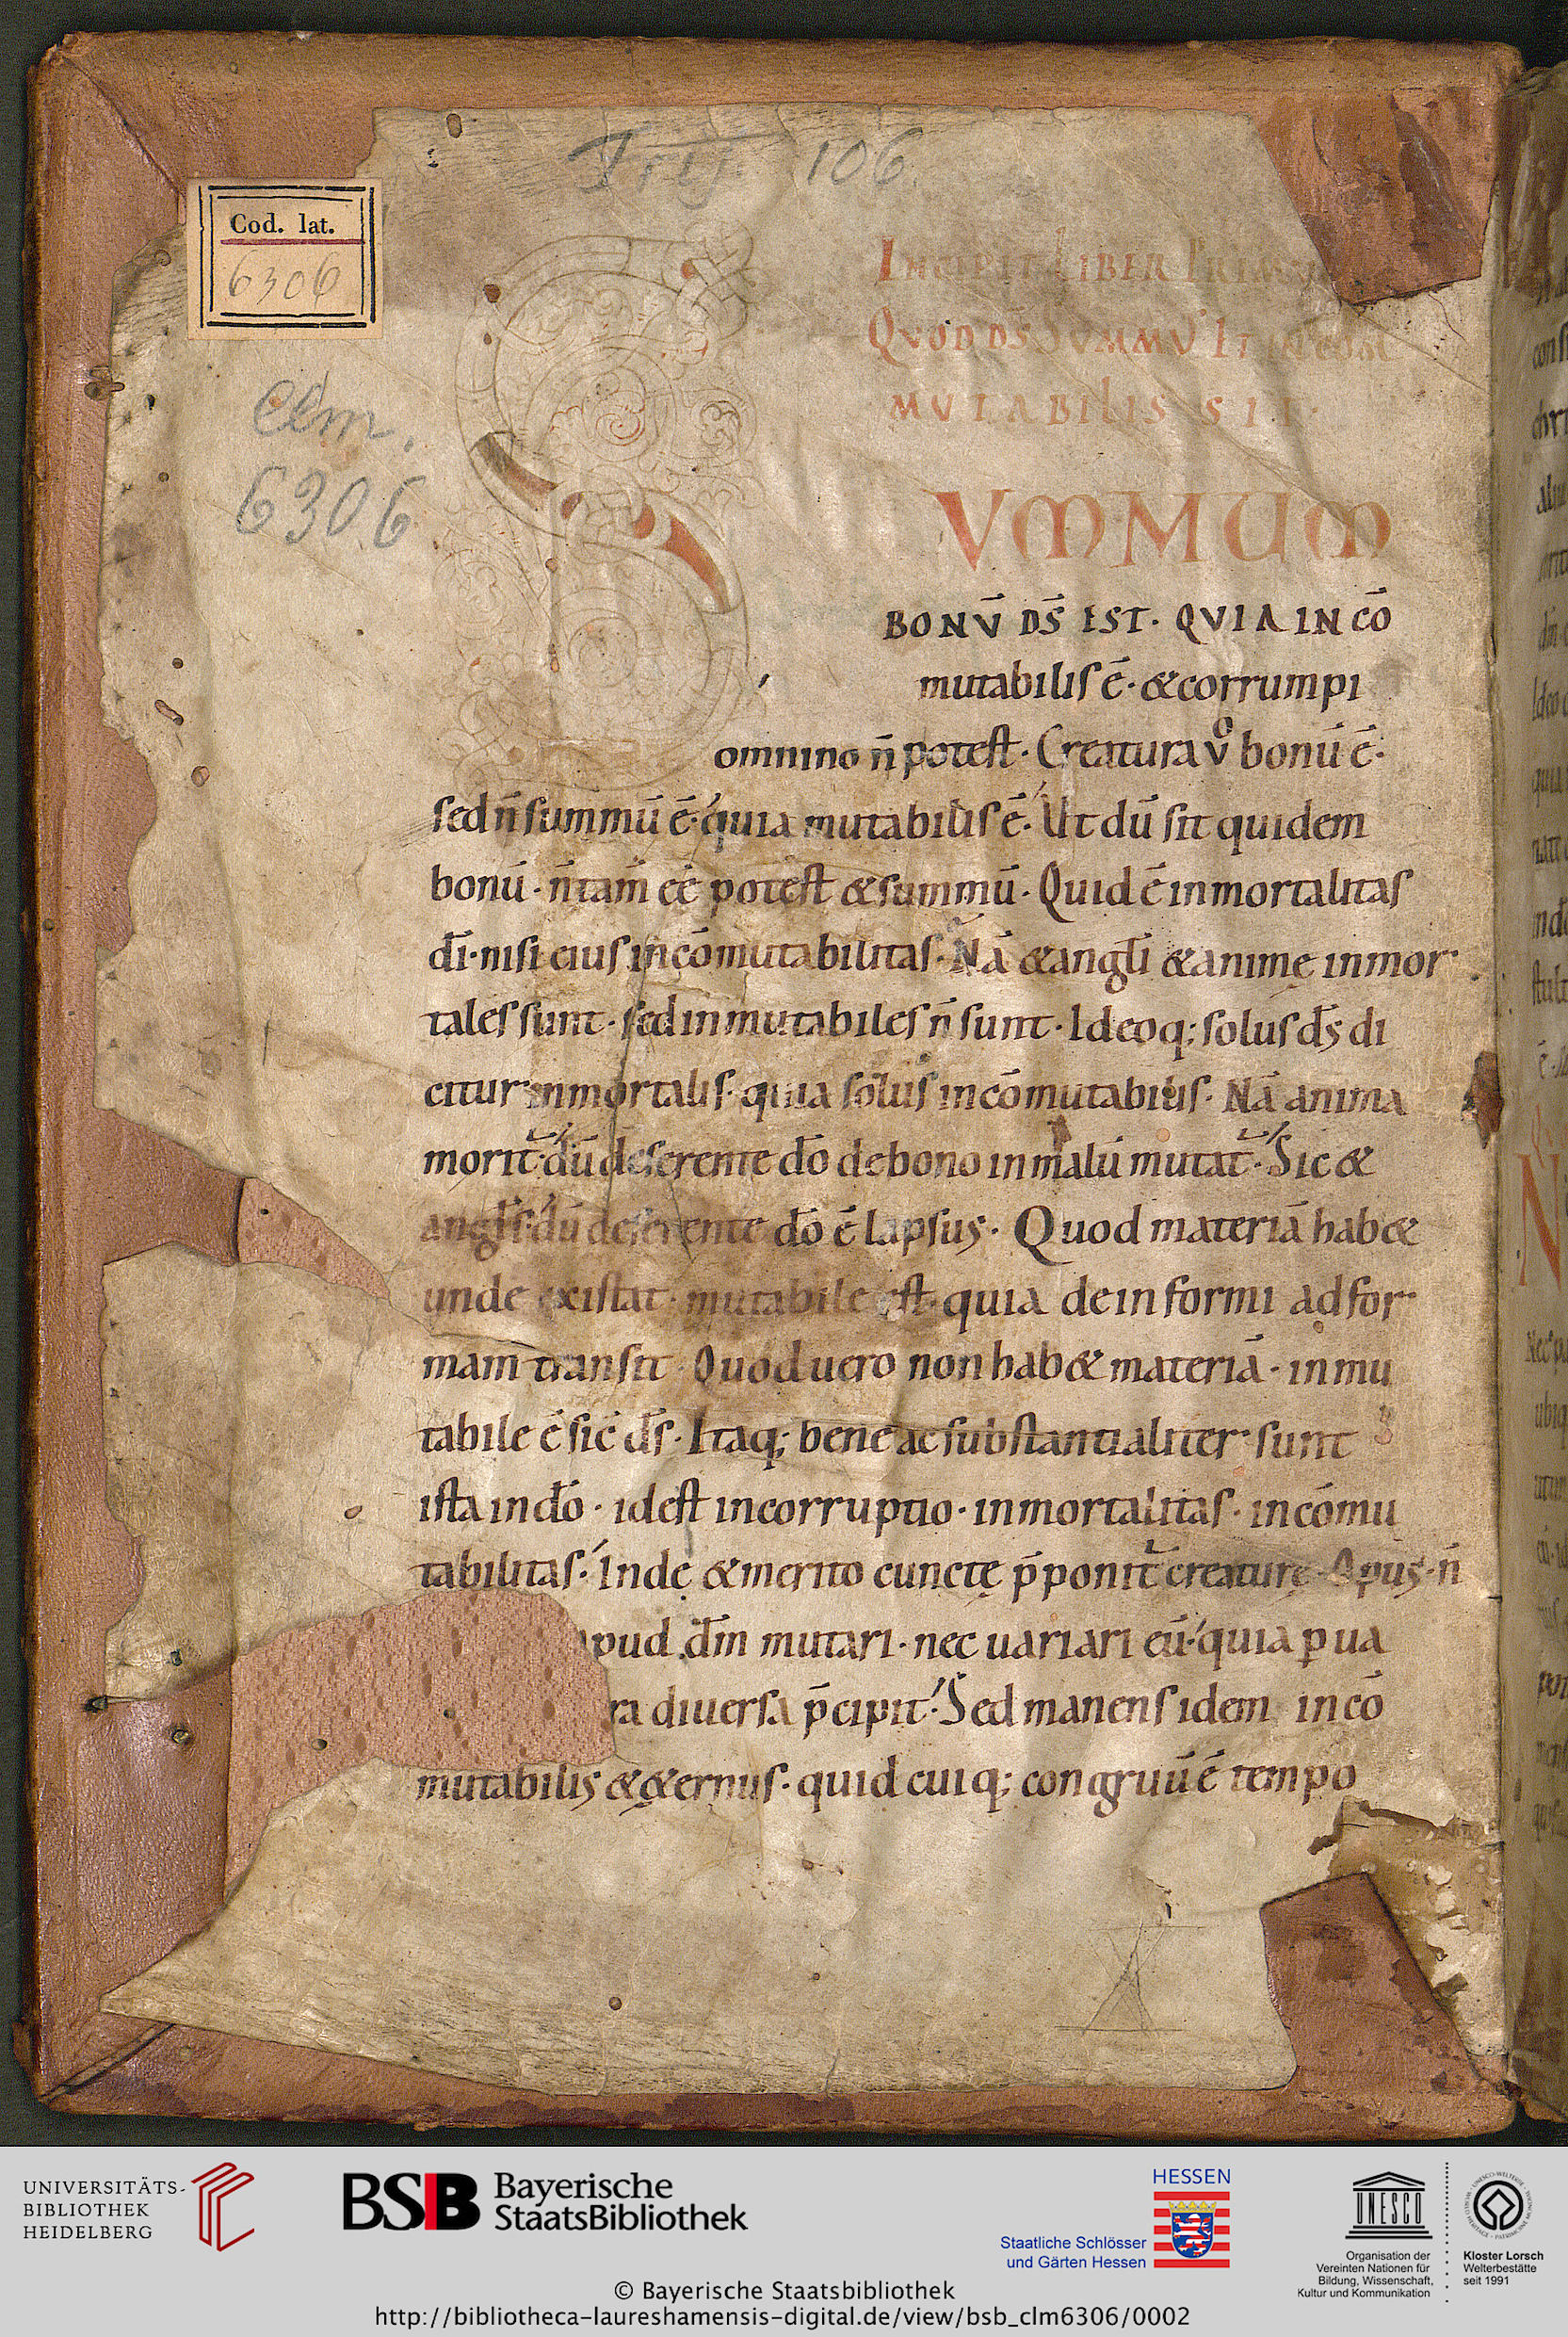 106
Cod. lat.
6306
Clm.
6306
INCIPIT LIBER PRIMUS
QVOD DS̄ SVMMV̄ ET INCOM
MVTABILIS SIT.
VMMUM
BONV̄ DS̄ EST. QVIA INCŌ
mutabilis ē. & corrumpi
omnino n̄ potest. Creatura v̊ bonū ē.
sed n̄ summū ē. quia mutabilis ē. Ut dū sit quidem
bonū. n̄ tam̄ eē potest & summū. Quid ē inmortalitas
dī. nisi eius incōmutabilitas. Nā & angłi & animę inmor
tales sunt. sed inmutabiles n̄ sunt. Ideoq; solus ds̄ di
citur inmortalis. quia solus incōmutabilis. Nā anima
morit̄. dū deserente dō de bono in malū mutat̄. Sic &
angłs. dū deserente dō ē lapsus. Quod materiā hab&
unde existat. mutabile est. quia de informi ad for
mam transit. Quod uero non hab& materiā. inmu
tabile ē sic̄ ds̄. Itaq; bene ac substantialiter sunt
ista in dō. id est incorruptio. inmortalitas. incōmu
tabilitas. Inde & merito cunctę p̄ponit̄ creaturę. Opus. n̄
pud dm̄ mutari. nec uariari eū. quia ꝑ ua
ra diuersa p̄cipit. Sed manens idem incō
mutabilis & &ernus. quid cuiq; congruū ē tempo
UNIVERSITÄTS-
BIBLIOTHEK
HEIDELBERG
BSB Bayerische
StaatsBibliothek
HESSEN
Staatliche Schlösser
und Gärten Hessen
UNESCO
Organisation der
Vereinten Nationen für
Bildung, Wissenschaft,
Kultur und Kommunikation
Kloster Lorsch
Welterbestätte
seit 1991
© Bayerische Staatsbibliothek
http://bibliotheca-laureshamensis-digital.de/view/bsb_clm6306/0002